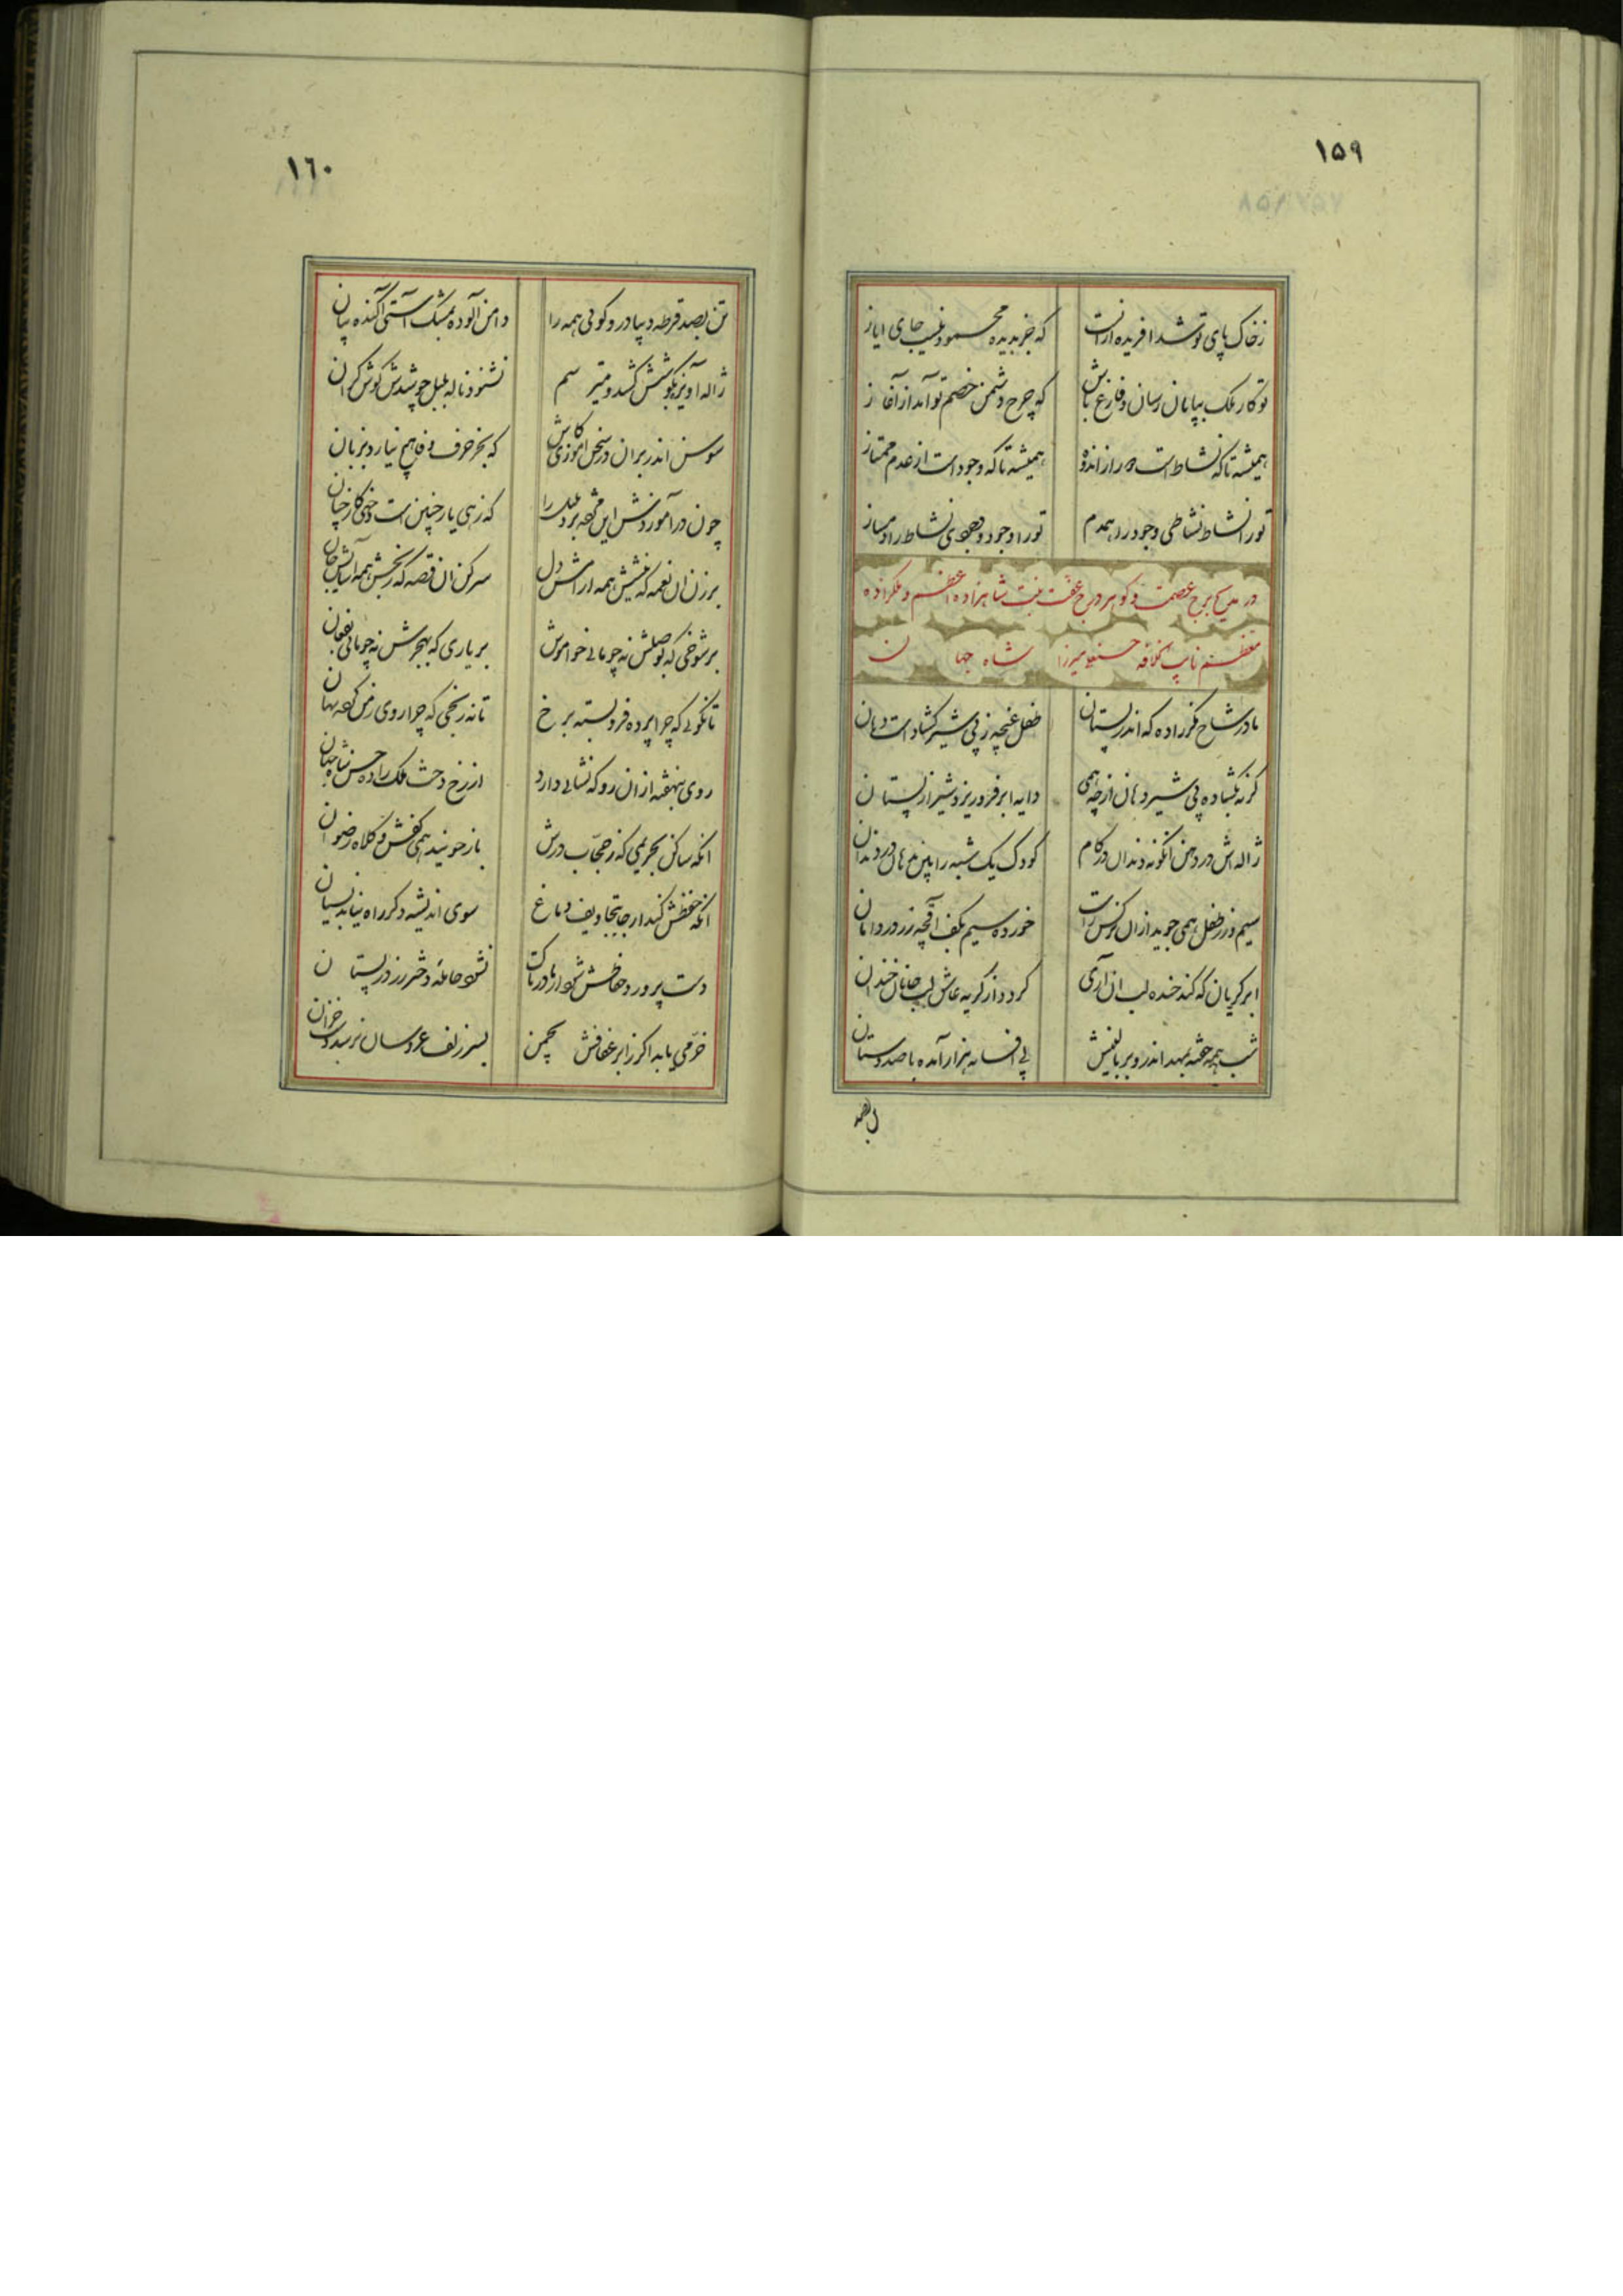 ١٥٩
ز خاک پای تو شد آفریده زانست که جز بدیده محمود نیست جای ایاز
تو کار ملک بپایان رسان و فارغ باش که چرخ دشمن خصم تو آمد از آغاز
همیشه تا که نشاط است دور از اندوه همیشه تا که وجود است از عدم ممتاز
تو را نشاط نشاطی وجود را همدم تو را وجود وجودی نشاط را دمساز
در مدیح برج عصمت و گوهر درج عفت بنت شاهزاده اعظم و ملکزاده
معظم نایب الخلافه حسنعلی میرزا شاه جهان
مادر شاخ مگر زاده که اندر بستان طفل غنچه ز پی شیر گشاد است دهان
گر نه بگشاده پی شیر دهان از چه همی دایه ابر فرو ریزد شیر از پستان
ژاله اش در دهن انگونه که دندان در کام کودک یک شبه را بین دهان در دندان
سیم و زر طفل همی جوید از ان نرگس راست خورده سیم بکف اقچه زر در دامان
ابر گریان که کند خنده لب ان آری گردد از گریه عاشق لب جانان خندان
شب همه خفته بمهد اندر و بر بالینش پی افسانه هزار آمده با صد دستان
تن بصد
١٦٠
تن بصد قرطه دیبا در و گوئی همه را دامن آلوده بمشک آستی آکنده ببان
ژاله آویز بگوشش کشد و میترسم نشنود ناله بلبل چو شدش گوش گران
سوسن اندر بر ان در سخن اموزی کاش که بجز حرف وفا هیچ نیارد بزبان
چون در آموزدش این مژده برد بلبل را که زهی یار چنین است و خهی کار چنان
بر زن ان نغمه که غمش همه ارامش دل سر کن ان قصه که رنجش همه آسایش جان
بر شوخی که بوصلش نه چو مانی خواموش بر یاری که بهجرش نه چو مانی بفغان
تا نگوئی که چرا پرده فرو بسته برخ تا نه رنجی که چرا روی ز من کرده نهان
روی بنهفته از ان رو که نشانی دارد از رخ دخت ملک زاده حسن شاه جهان
انکه ساکن بحریمی که ز حجاب درش باز جویند همی کفش و کلاه رضوان
انکه حفظش کند ار جا بتجاویف دماغ سوی اندیشه دگر راه نیابد نسیان
دست پرورد حفاظش شود ار مادر تاک نشود حامله دختر رز در بستان
خرمی یابد اگر ز ابر عفافش چمن بسر زلف عروسان نرسد دست خزان